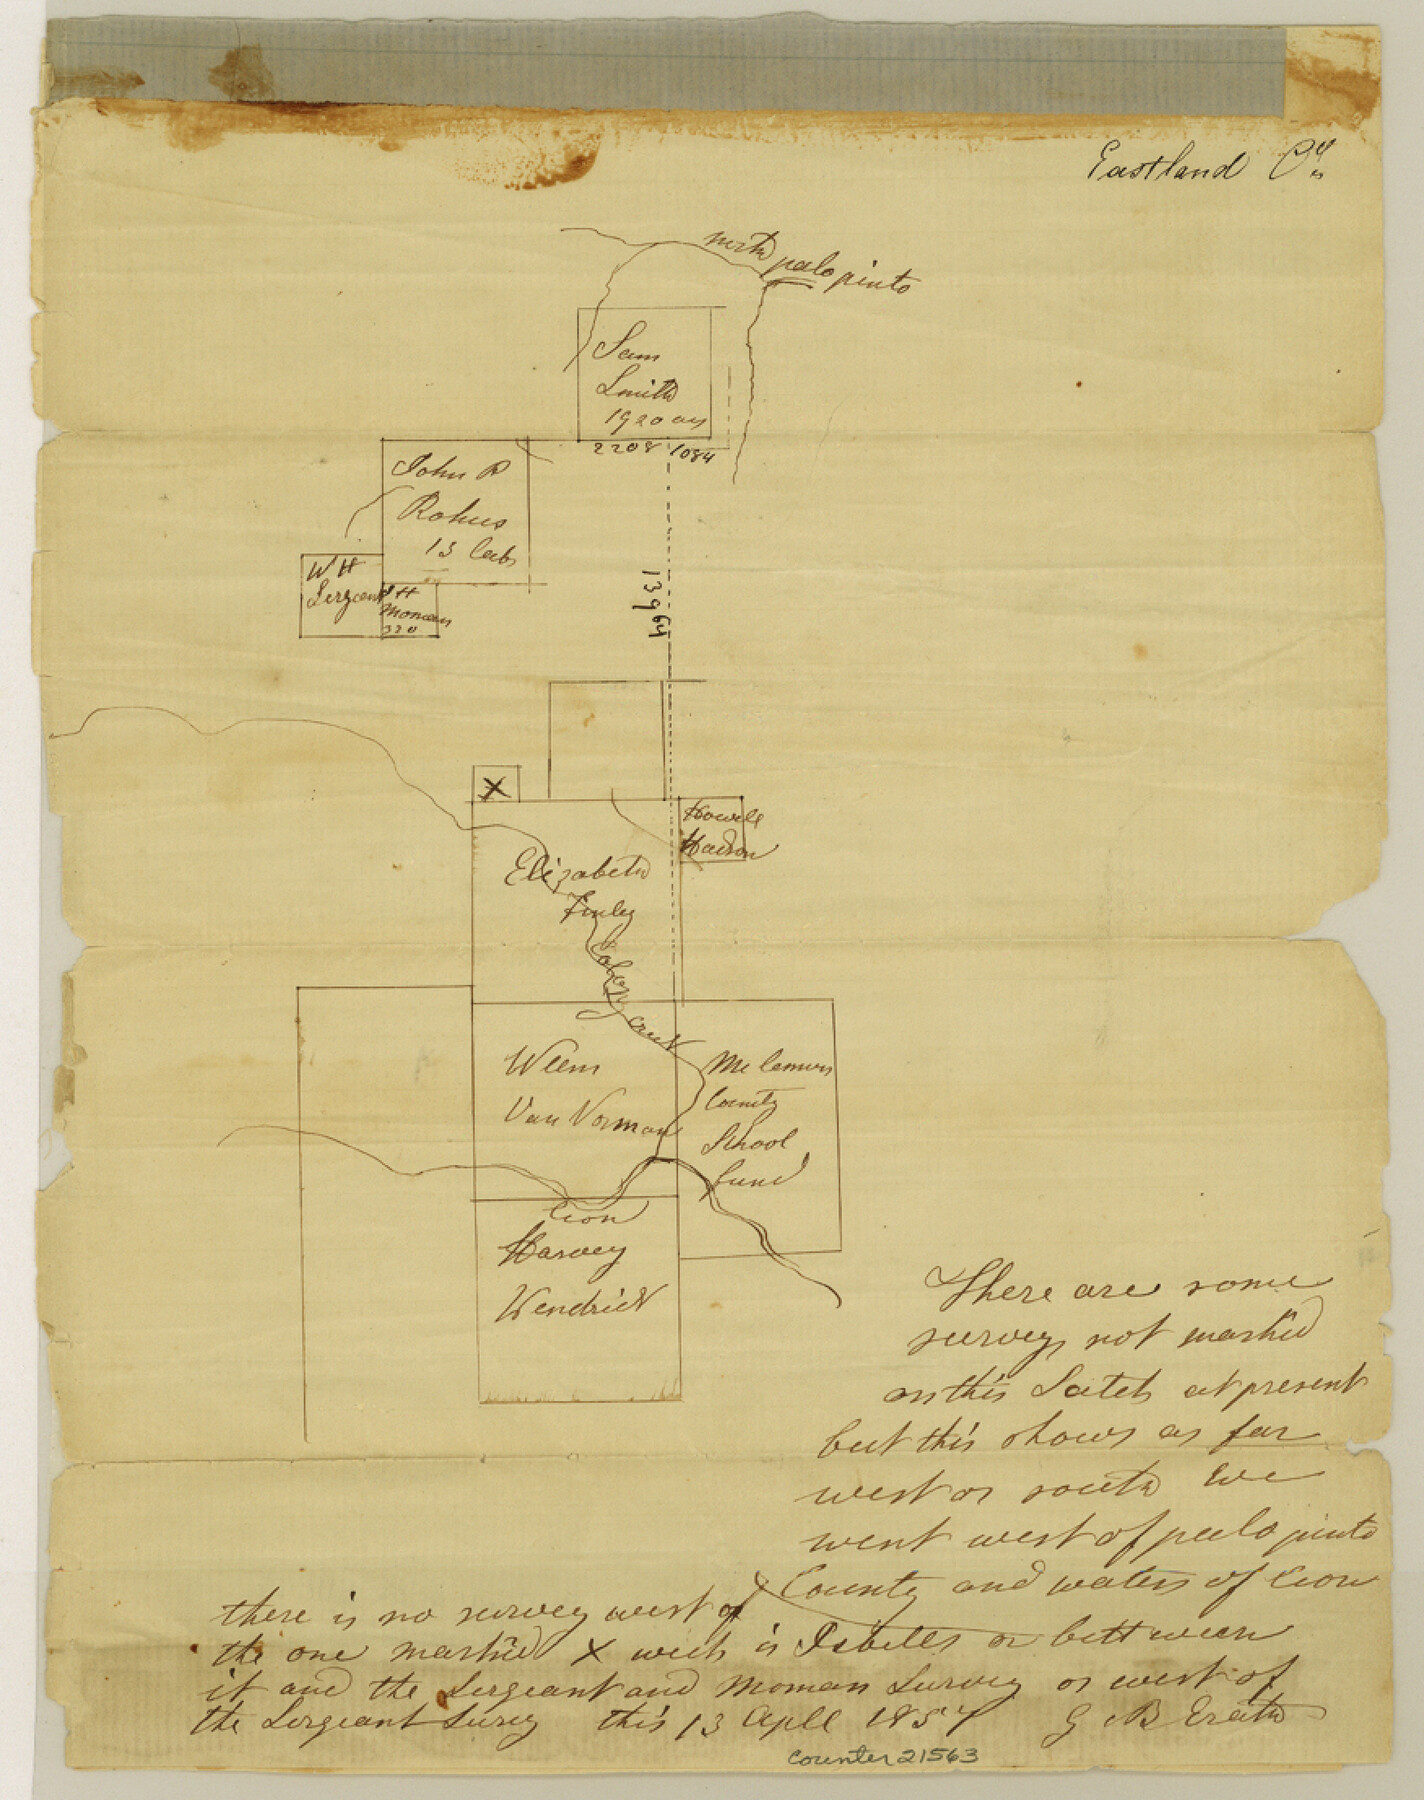 Eastland Cy
north palo pinto
Sam
Smith
1920 acs
2208 1084
John R
13 labs
W H
Sergeant
H
Moman
320
13964
X
Howell
Elizabeth
Finley
Colony creek
Weem
Van Norman
McLemurs
County
School
fund
Leon
Harvey
Kendrick
There are some
surveys not markd
on this Scetch at present
but this shows as far
west or south we
went west of palo pinto
County and waters of Leon
there is no survey west of
the one markd X wich is Isbells or bettween
it and the Sergeant and Moman Survey or west of
the Sergeant Survey this 13 Apll 1857 G B Erath
counter 21563